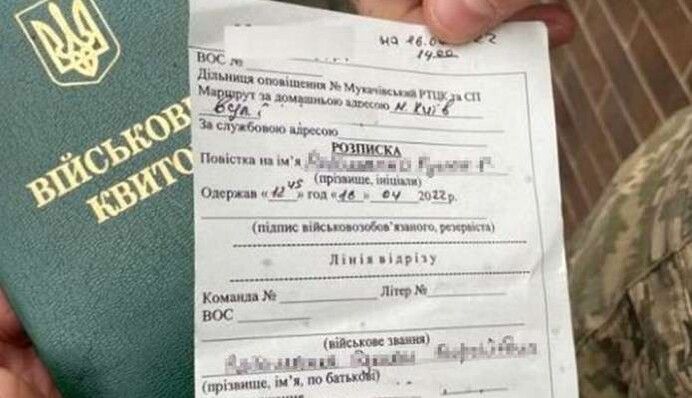 ВІЙСЬКОВ
КВИТО
на 16.0
22
14.00
ВОС №
Дільниця оповіщення № Мукачівський РТЦК та СП
Маршрут за домашньою адресою м. Київ
вул
За службовою адресою
РОЗПИСКА
Повістка на ім'я
(прізвище, ініціали)
Одержав «12 45» год «16» 04 2022р.
(підпис військовозобов'язаного, резервіста)
Лінія відрізу
Команда № Літер №
ВОС
(військове звання)
(прізвище, ім'я, по батькові)